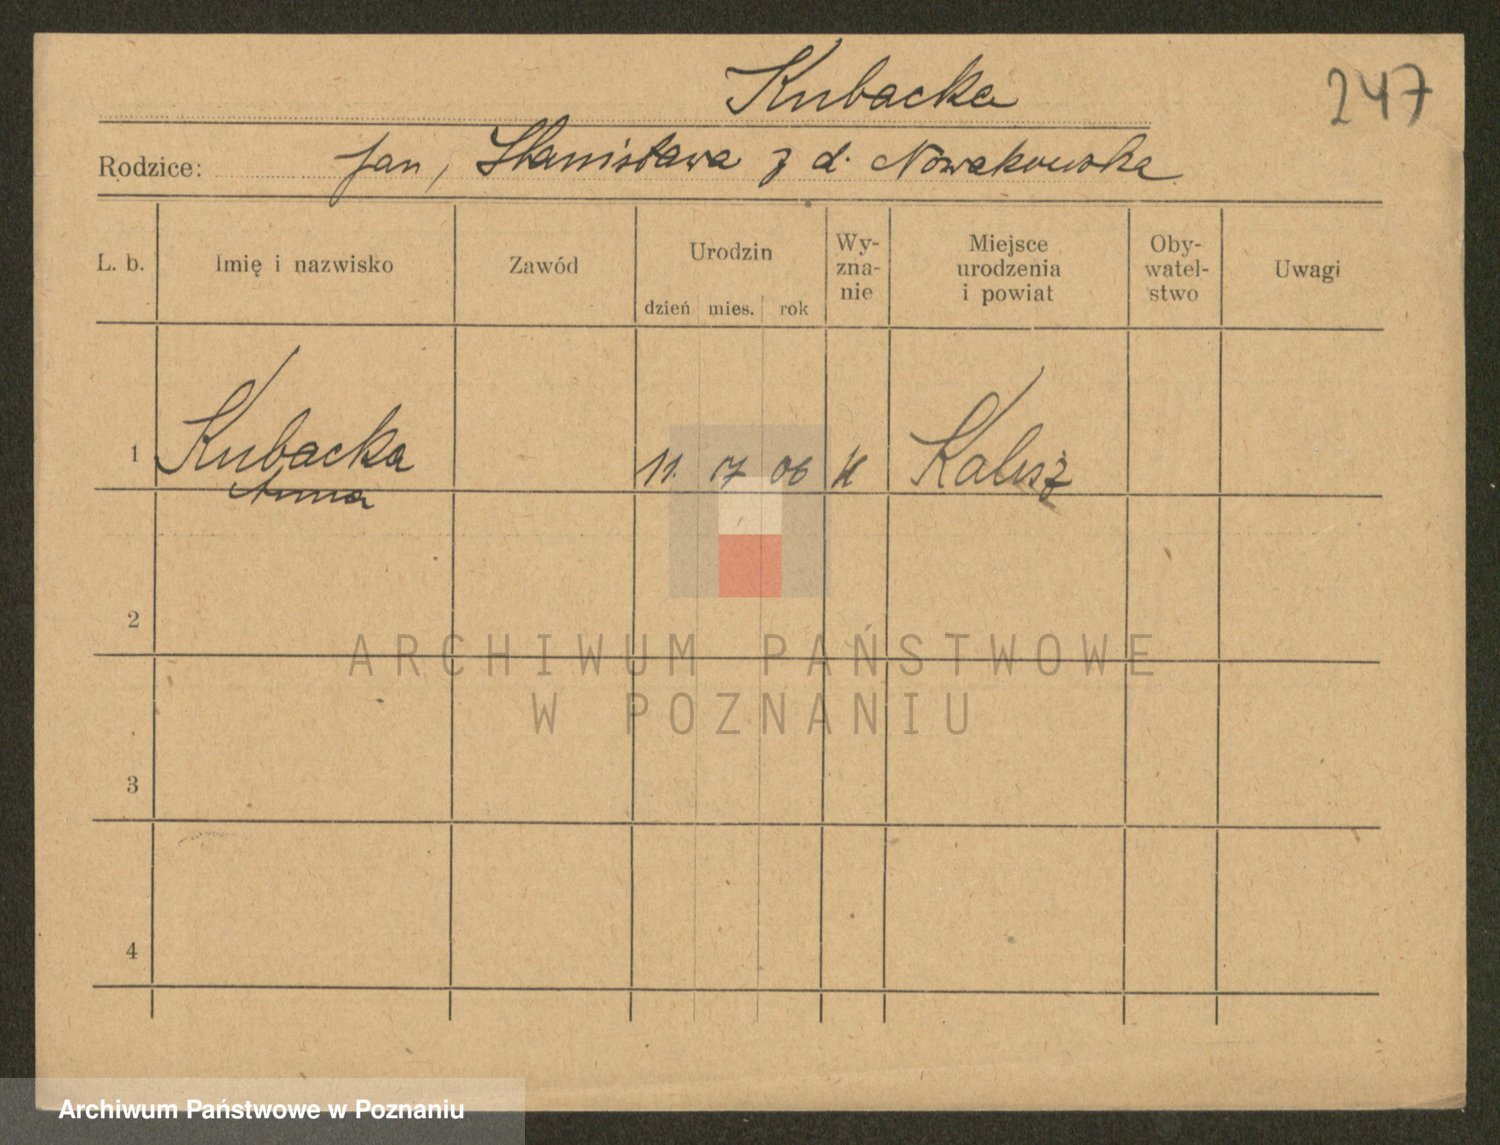 Kubacka
247
Rodzice: Jan, Stanisława z d. Nowakowska
L. b. Imię i nazwisko Zawód Urodzin Wy-
zna-
nie Miejsce
urodzenia
i powiat Oby-
watel-
stwo Uwagi
dzień mies. rok
1 Kubacka
Anna 11. 06 Kalisz
2
3
4
ARCHIWUM PAŃSTWOWE
W POZNANIU
Archiwum Państwowe w Poznaniu